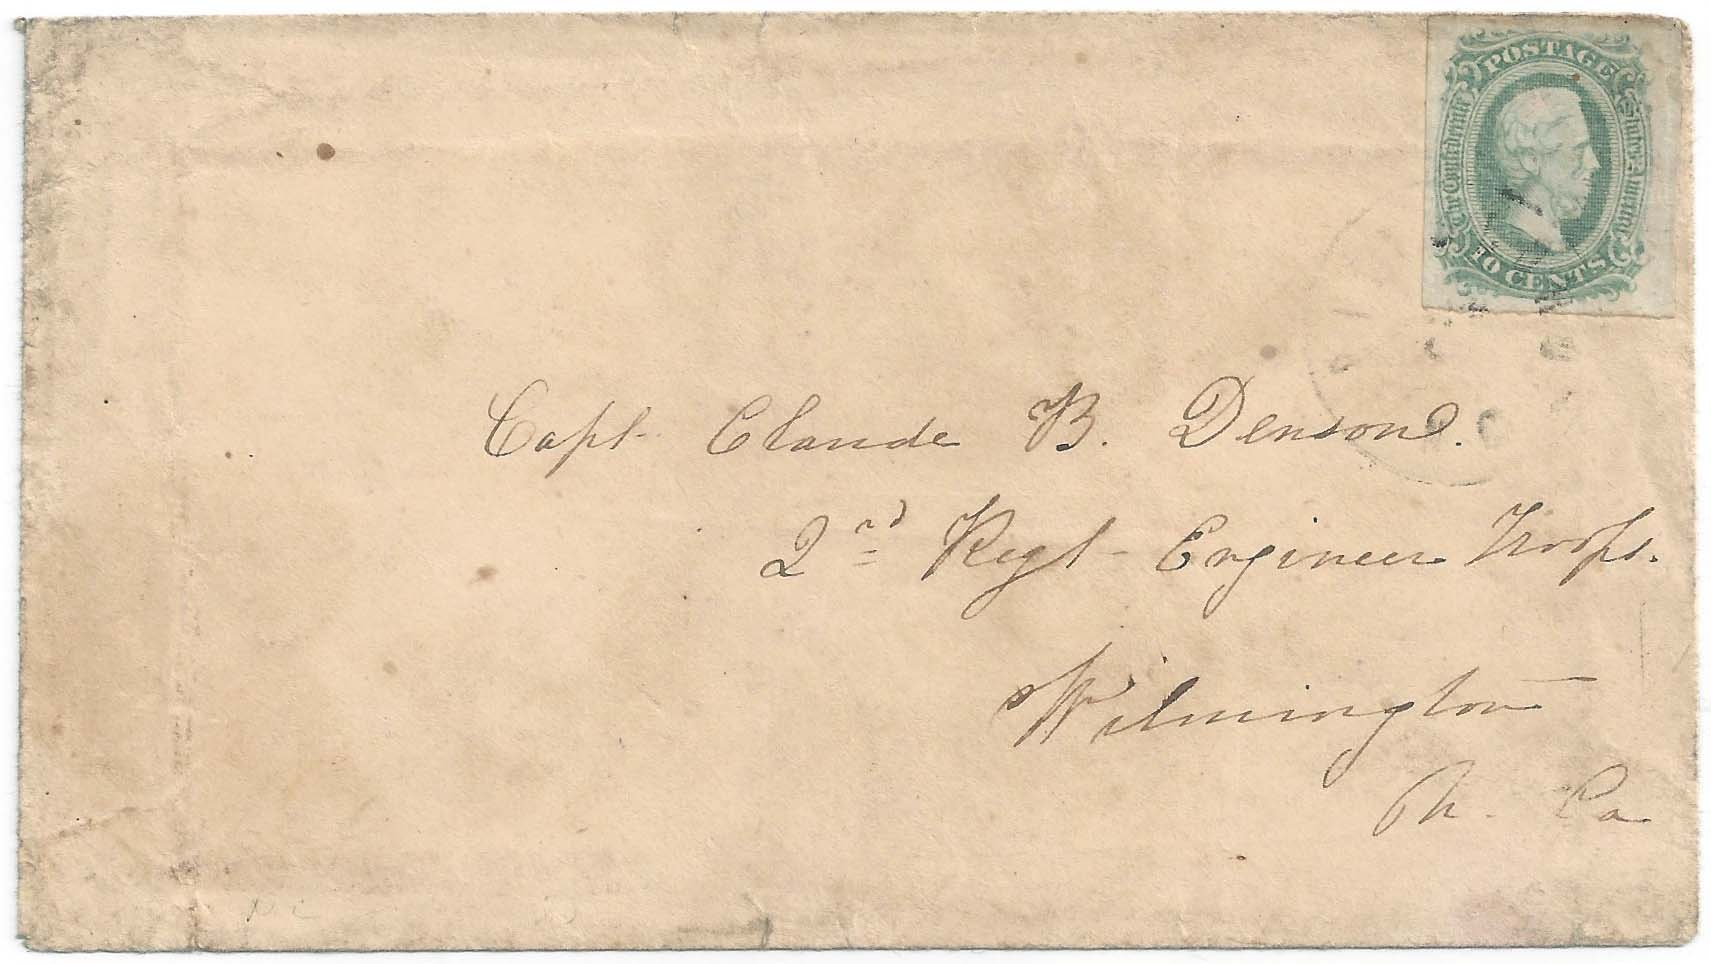 POSTAGE
The Confederate States of America
10 CENTS
Capt Claude B. Denson.
2nd Regt Engineer Troops.
Wilmington
N. Ca